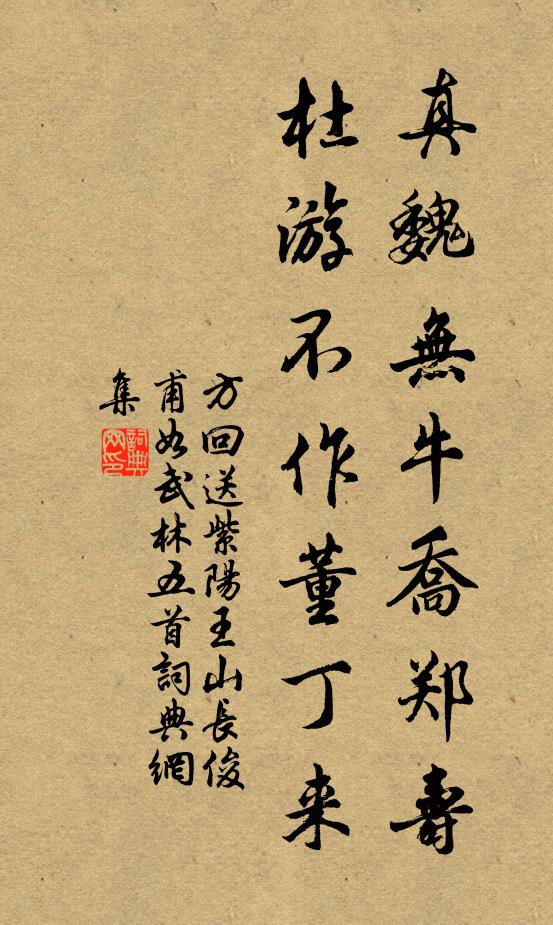 真魏無牛喬郑壽
杜游不作董丁来
方回送紫陽王山長俊
甫如武林五首詞典網
集
詞典網印